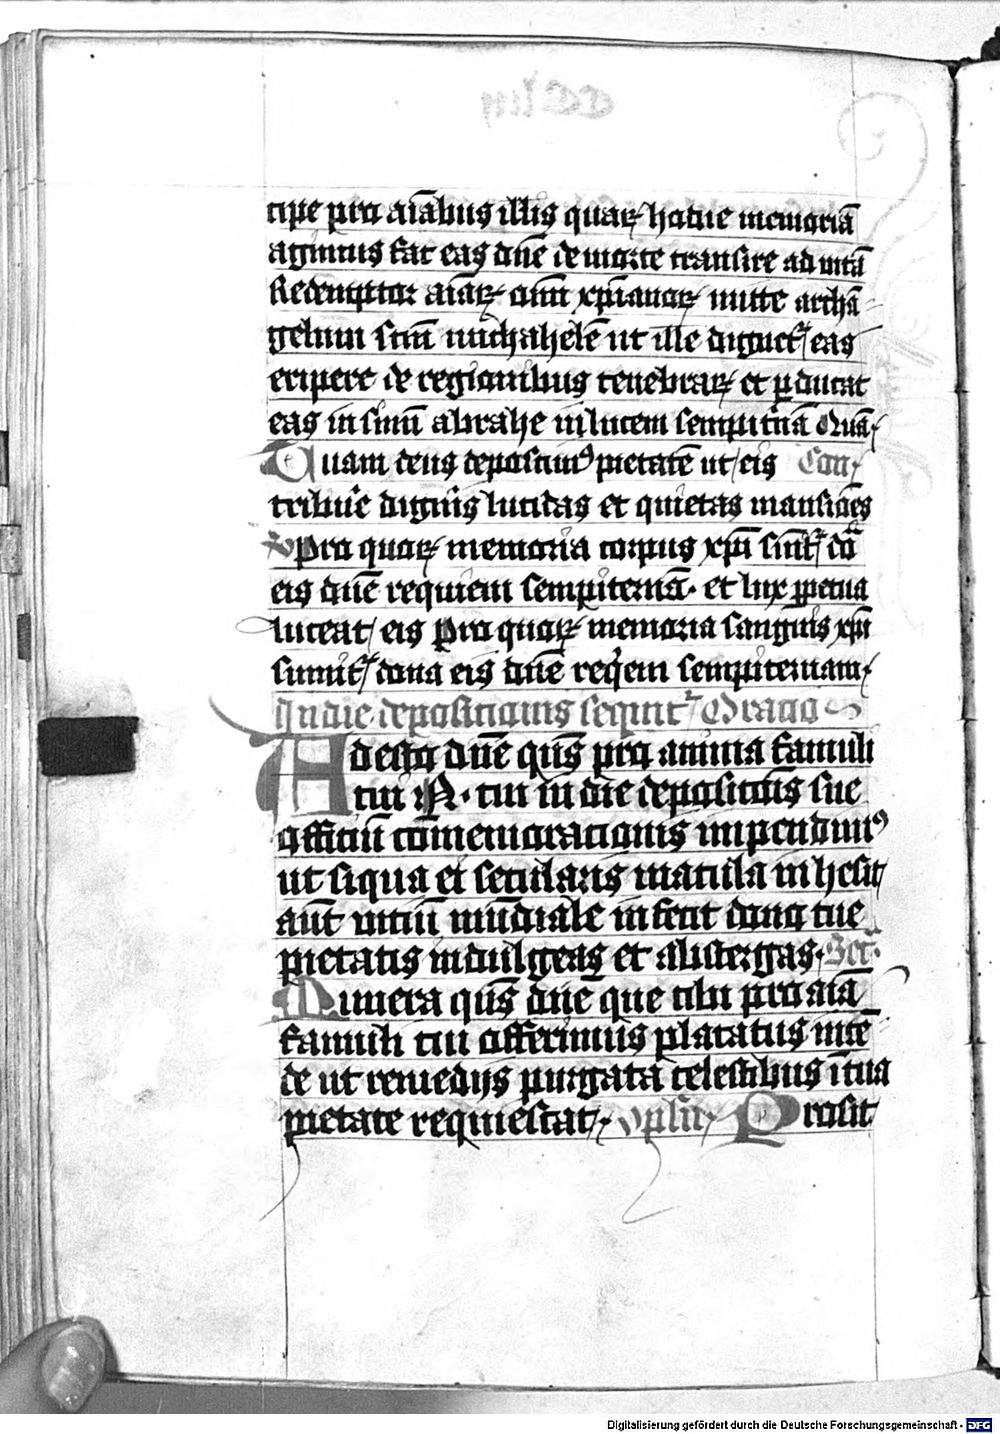 cipe pro aīabus illis quaꝝ hodie memoriā
agimus fac eas dn̄e de morte transire ad uitā
Redemptor aīaꝝ om̄i xp̄ianoꝝ mitte archā-
gelum sc̄m michahelē ut ille dignet᷑ eas
eripere de regionibus tenebraꝝ et ꝑducat
eas in sinū abrahe in lucem sempit̄nā Quā
Quam deus deposcimꝰ pietatē ut eis Com
tribuē digneris lucidas et quietas mansiōes
Pro quoꝝ memoria corpus xp̄i sumit᷑ dā
eis dn̄e requiem sempiternā. et lux ꝑpetua
luceat eis Pro quoꝝ memoria sanguis xp̄i
sumit᷑ dona eis dn̄e req̇em sempiternam
In die depositionis sequit᷑ Oracio
Adesto dn̄e qūs pro anima famuli
tui N. cui in die depositiōis sue
officiū cōmemoracionis impendimꝰ
ut siqua ei secularis macula inhesit
aut uiciū mūdiale infecit dono tue
pietatis indulgeas et abstergas. Secᷓ.
Munera qūs dn̄e que tibi pro aīa
famuli tui offerimus placatus intē-
de ut remedijs purgata celestibus ī tua
pietate requiescat ꝯplēt Prosit
Digitalisierung gefördert durch die Deutsche Forschungsgemeinschaft - DFG